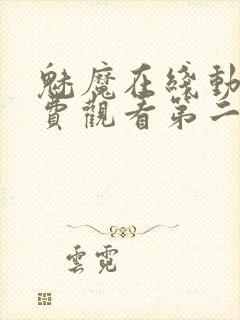 魅魔在綫動
費觀看第二
雲霓